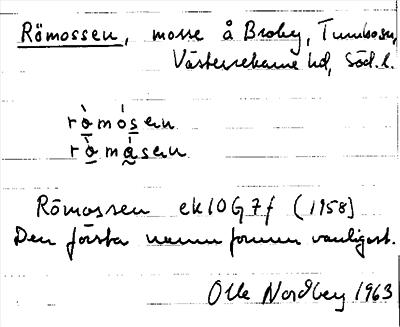 Römossen, mosse å Broby, Tumbosn,
Västerrekarne hd, Söd. l.
rò̱mós̱en
rò̱mås̱en
Römossen ek 10G7f (1958)
Den första namnformen vanligast.
Olle Nordbey 1963